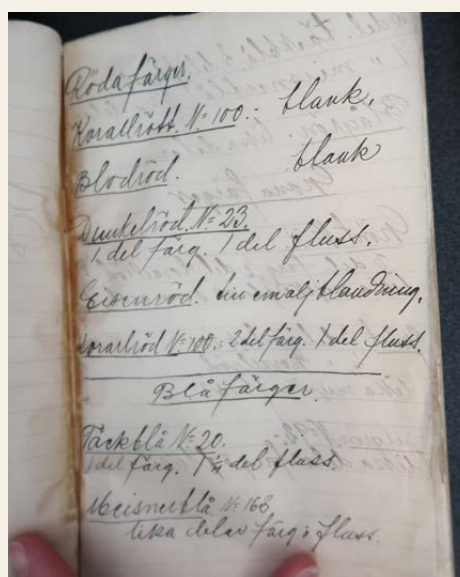 Röda färger.
Korallrött. No 100.- blank.
Blodröd. blank
Dunkelröd. No 23.
1 del färg. 1 del fluss.
Eisenröd. emaljblandning.
Korarlröd No 100. 2 del färg. 1 del fluss.
Blå färger
Täckblå No 20.
1 del färg. 1 del fluss.
Meisnerblå No 168
lika delar färg o fluss.